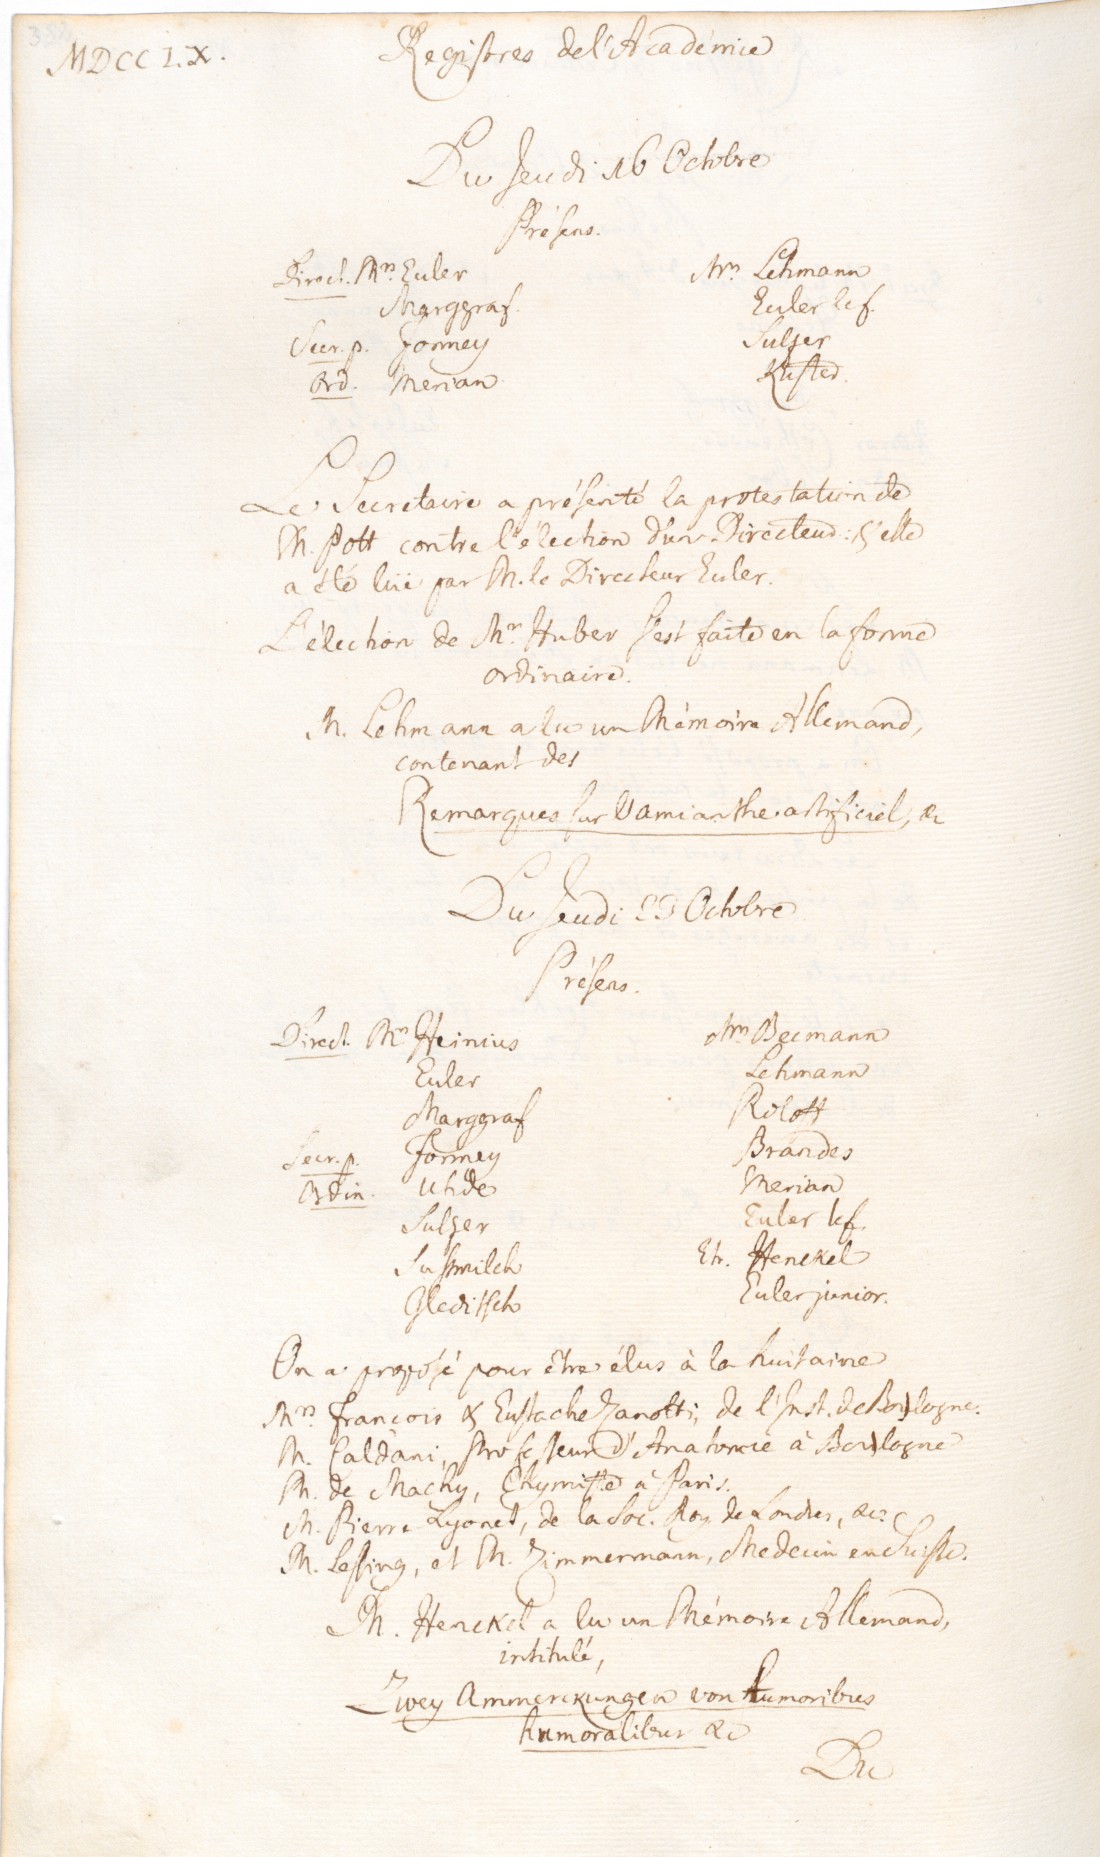 MDCCLX.
Registres de l'Académie
Du Jeudi 16 Octobre
Présens.
Direct. Mrs. Euler
Mrs. Lehmann
Marggraf.
Euler le f.
Secr. p. Formey
Sulzer
Ord. Merian
Küster.
Le Secretaire a présenté la protestation de
M. Pott contre l'élection d'un Directeur: & elle
a été lüe par M. le Directeur Euler.
L'élection de Mr. Huber s'est faite en la forme
ordinaire.
M. Lehmann a lu un Mémoire Allemand,
contenant des
Remarques sur l'amianthe artificiel, &c
Du Jeudi 23 Octobre
Présens.
Direct. Mrs Heinius
Mrs Becmann
Euler
Lehmann
Marggraf
Roloff
Secr. p. Formey
Brandes
Ordin. Uhde
Merian
Sulzer
Euler le f.
Sussmilch
Etr. Henckel
Gleditsch
Euler junior.
On a proposé pour être élus à la huitaine
Mrs. François & Eustache Zanotti, de l'Inst. de Boulogne.
M. Caldani, Professeur d'Anatomie à Boulogne
M. de Machy, Chymiste à Paris.
M. Pierre Lyonet, de la Soc. Roy. de Londres, &c.
M. Lessing, et M. Zimmermann, Medecin en Suisse.
M. Henckel a lu un Mémoire Allemand,
intitulé,
Zwey Ammerckungen von humoribus
humoralibus &c
Du